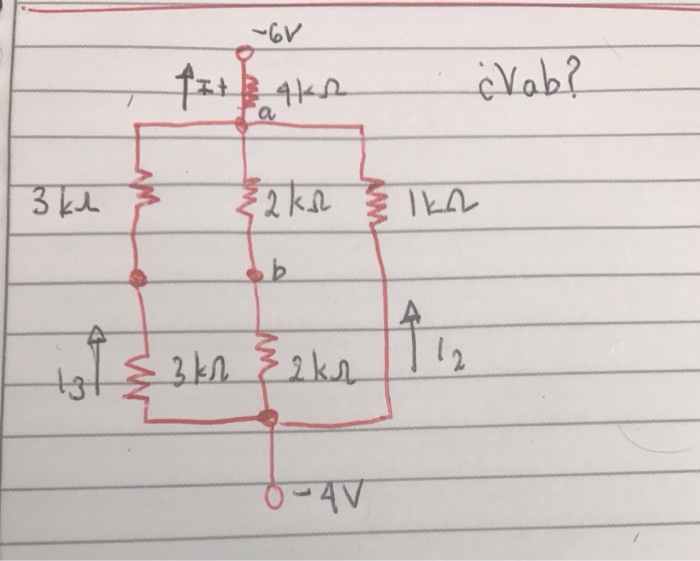 -6V
I+ 4kΩ
a
¿Vab?
3kΩ 2kΩ 1kΩ
b
I3 3kΩ 2kΩ I2
-4V